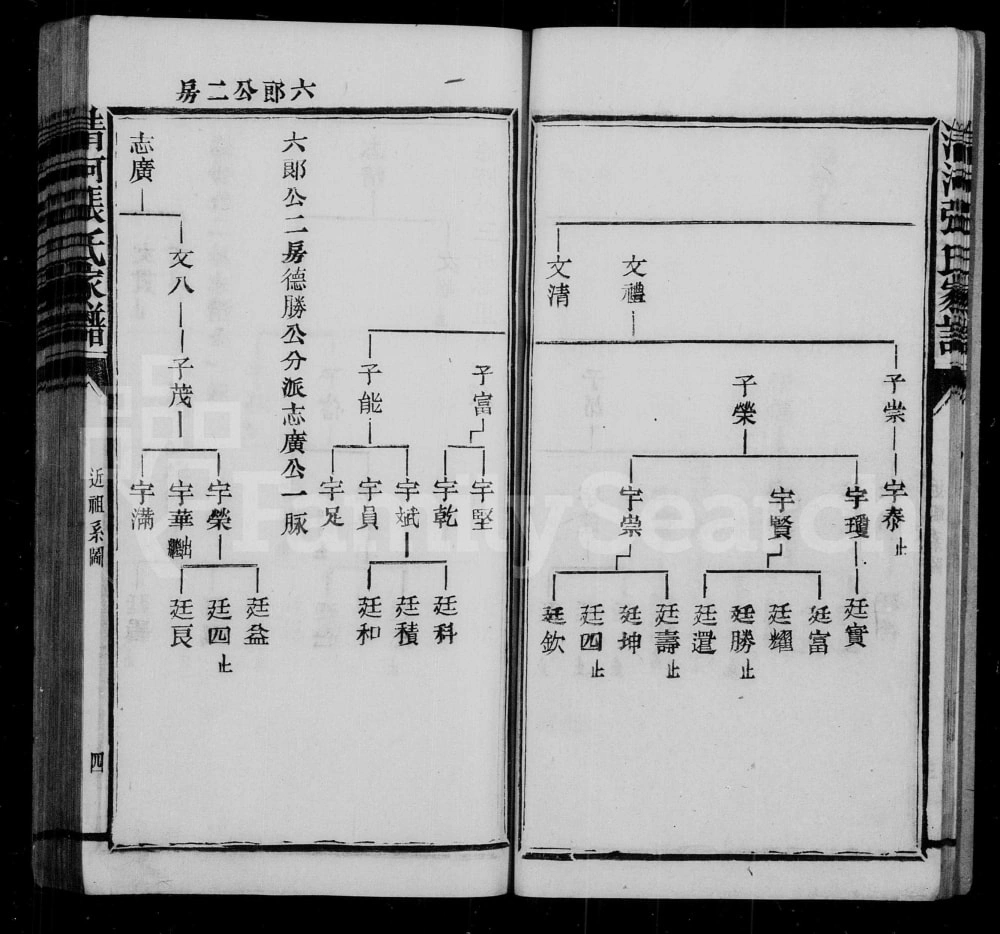 清河張氏家譜
文禮
文清
子崇
子榮
宇泰止
宇瓊
宇賢
宇崇
廷實
廷富
廷耀
廷勝止
廷選
廷壽止
廷坤
廷四止
廷欽
六郎公二房
子富
子能
宇堅
宇乾
宇斌
宇員
宇足
廷科
廷積
廷和
六郎公二房德勝公分派志廣公一脉
志廣
文八
子茂
宇榮
宇華出繼
宇滿
廷益
廷四止
廷良
清河張氏家譜
近祖系圖
四
FamilySearch